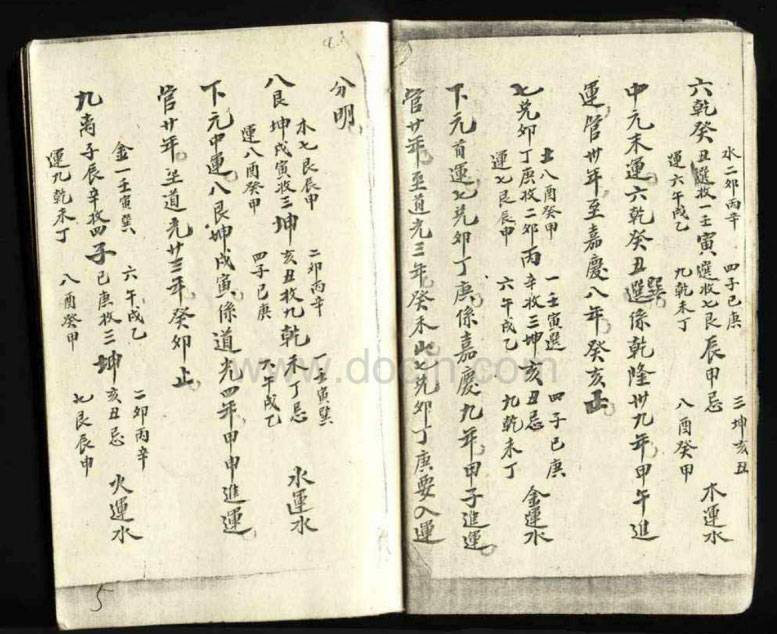 水二卯丙辛 四子已庚 三坤亥丑
六乾癸丑選救一壬寅選救七艮辰甲忌 木運水
運六午戌乙 九乾未丁 八酉癸甲
中元末運六乾癸丑巽係乾隆卅九年甲午進
運管卅年至嘉慶八年癸亥止
土八酉癸甲 一壬寅選 四子已庚
七兌卯丁庚救二卯丙辛救三坤亥丑忌 金運水
運七艮辰甲 六午戌乙 九乾未丁
下元首運七兌卯丁庚係嘉慶九年甲子進運
管廿年至道光三年癸未止七兌卯丁庚要入運
分明
木七艮辰甲 二卯丙辛 一壬寅巽
八艮坤戌寅救三坤亥丑救九乾未丁忌 水運水
運八酉癸甲 四子已庚 六午戌乙
下元中運八艮坤戌寅係道光四年甲申進運
管廿年至道光廿三年癸卯止
金一壬寅巽 六午戌乙 二卯丙辛
九离子辰辛救四子已庚救三坤亥丑忌 火運水
運九乾未丁 八酉癸甲 七艮辰申
5
www.docin.com